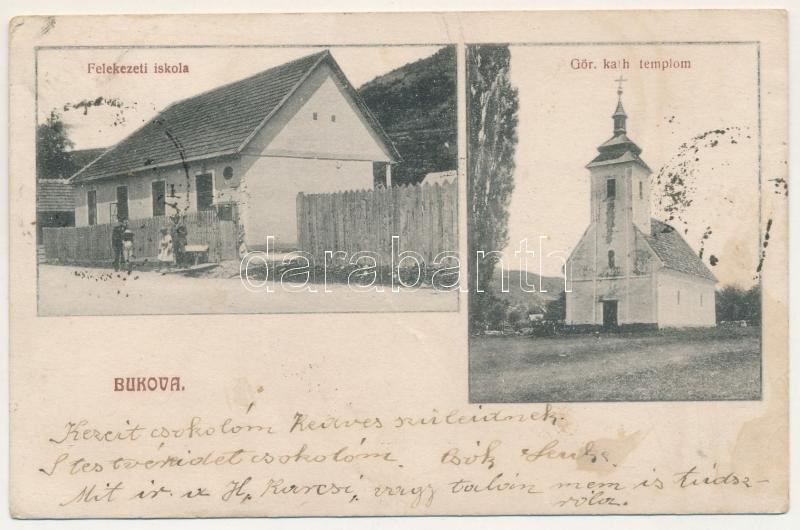 Felekezeti iskola
Gör. kath templom
darabanth
BUKOVA.
Kezeit csokolóm Kedves szüleidnek
S testvéridet csokolóm. Csók
Mit ir a H, Karcsi, vagy talán mem is tudsz
róla.